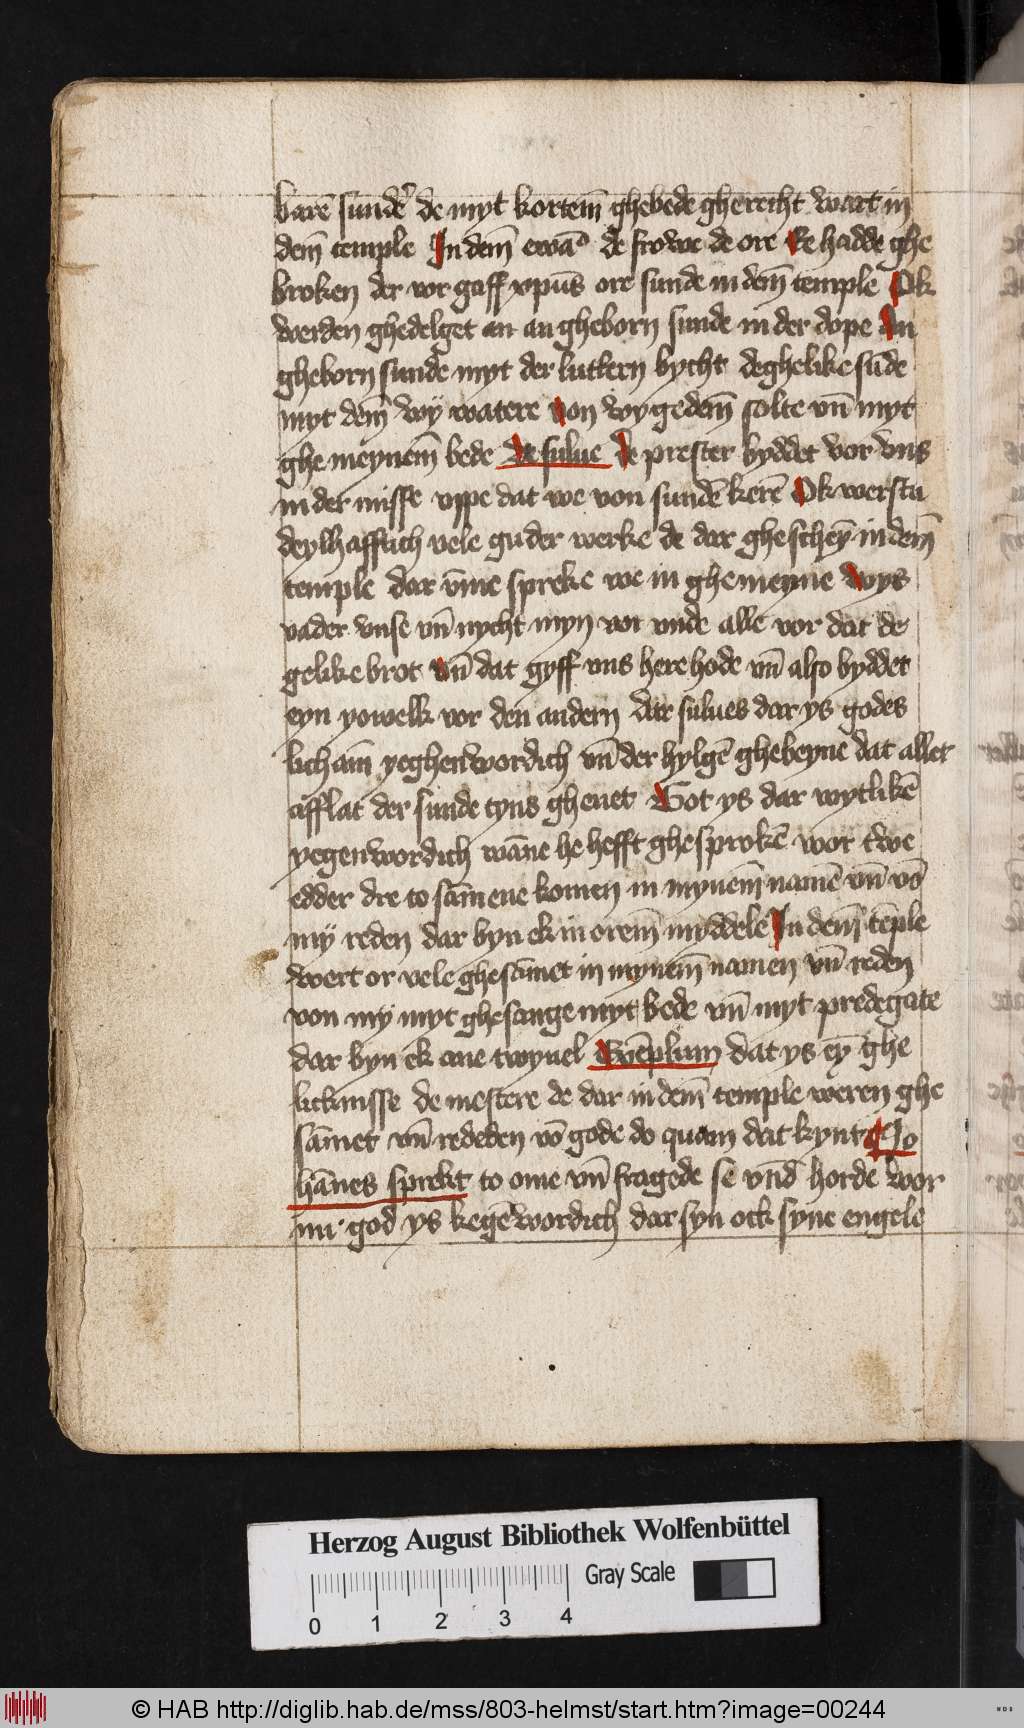 barē sundeʳ de myt kortem̄ ghebede gherecht wart in
dem̄ temple In dem̄ ewāᵒ de frowe de ore Ee hadde ghe
broken der vor gaff xpūs ore sunde in dem̄ temple Ok
werden ghedelget an an gheborn sunde in der dope An
gheborn sunde myt der luttern bycht deghelike sūde
myt dem̄ wÿ watere von wygedem̄ solte vn̄ myt
ghe meynem̄ bede De sulue De prester byddet vor vns
in der misse vppe dat we von sundē kerē Ok werstu
deylhafftich vele guder werke de dar gheschey̅ in dem̄
temple dar vm̄e spreke we in ghemeyne Wys
vader vnse vn̄ nycht myn vor vnde alle vor dat de
gelike brot vn̄ dat gyff vns here hode vn̄ also byddet
eyn yowelk vor den andern dar sulues dar ys godes
licham̄ yeghenwordich vn̄ der hylgē ghebeyne dat allet
afflat der sunde tyns gheuet Got ys dar wytlikē
yegenwordich wān̄e he hefft ghesprokē wor twe
edder dre to sām̄ene komen in mynem̄ namē vn̄ vō
mÿ reden dar byn ek in orem̄ myddele In dem̄ tēple
wert or vele ghesam̄et in mynem̄ namen vn̄ reden
von mÿ myt ghesange myt bede vn̄ myt predegate
dar byn ek ane twyuel Tēplum dat ys ey̅ ghe
licknisse de mestere de dar in dem̄ temple weren ghe
sām̄et vn̄ rededen vō gode do quam dat kynt Jo
hān̄es sprekt to ome vn̄ fragede se vnd̄ horde wor
nu god ys kegēwordich dar syn ock syne engele
Herzog August Bibliothek Wolfenbüttel
Gray Scale
0 1 2 3 4
© HAB http://diglib.hab.de/mss/803-helmst/start.htm?image=00244